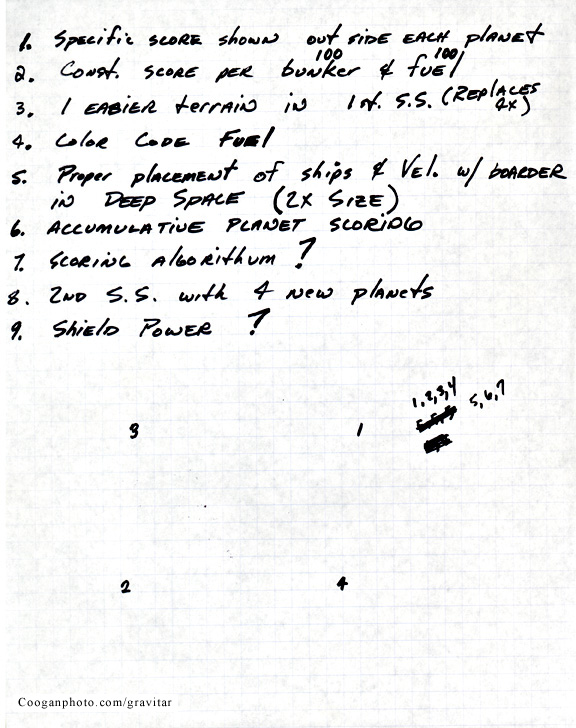 1. Specific score shown out side each planet
100 100
2. Const. score per bunker & fuel
3. 1 EASIER terrain in 1st. S.S. (REPLACES 2x)
4. Color Code Fuel
5. Proper placement of ships & Vel. w/ boarder
in Deep Space (2X Size)
6. ACCUMULATIVE PLANET SCORING
7. Scoring Algorithum ?
8. 2ND S.S. with 4 new planets
9. Shield Power ?
1,2,3,4 5,6,7
3 1
2 4
Cooganphoto.com/gravitar